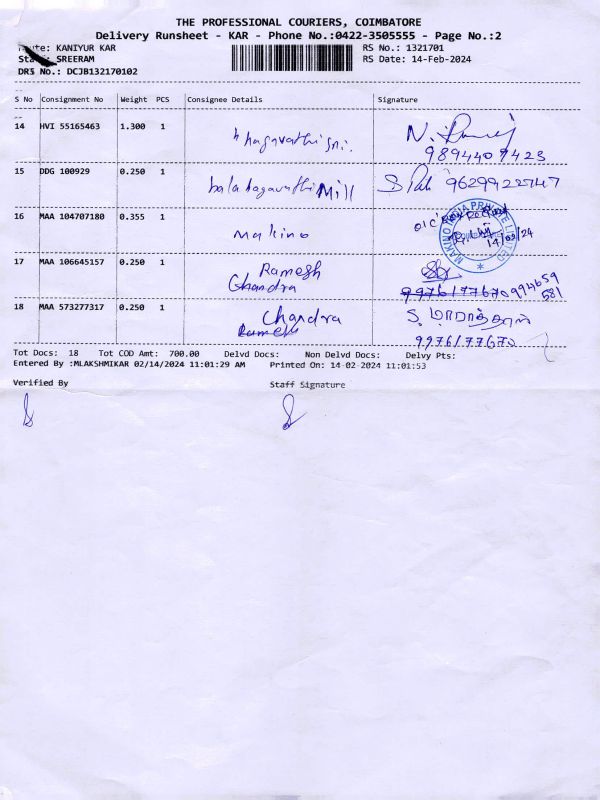 THE PROFESSIONAL COURIERS, COIMBATORE
Delivery Runsheet - KAR - Phone No.:0422-3505555 - Page No.:2
KANIYUR KAR RS No.: 1321701
SREERAM RS Date: 14-Feb-2024
DRS No.: DCJB132170102
S No Consignment No Weight PCS Consignee Details Signature
14 HVI 55165463 1.300 1 bhagavathi sri. N.
9894407423
15 DDG 100929 0.250 1 bala bagavathi Mill 9629922747
16 MAA 104707180 0.355 1 makino
MAKINO INDIA PRIVATE LIMITED
14/02/24
17 MAA 106645157 0.250 1 Ramesh
Chandra 9976177670 994659
581
18 MAA 573277317 0.250 1 Chandra
Ramesh 9976177670
Tot Docs: 18 Tot COD Amt: 700.00 Delvd Docs: Non Delvd Docs: Delvy Pts:
Entered By :MLAKSHMIKAR 02/14/2024 11:01:29 AM Printed On: 14-02-2024 11:01:53
Verified By Staff Signature